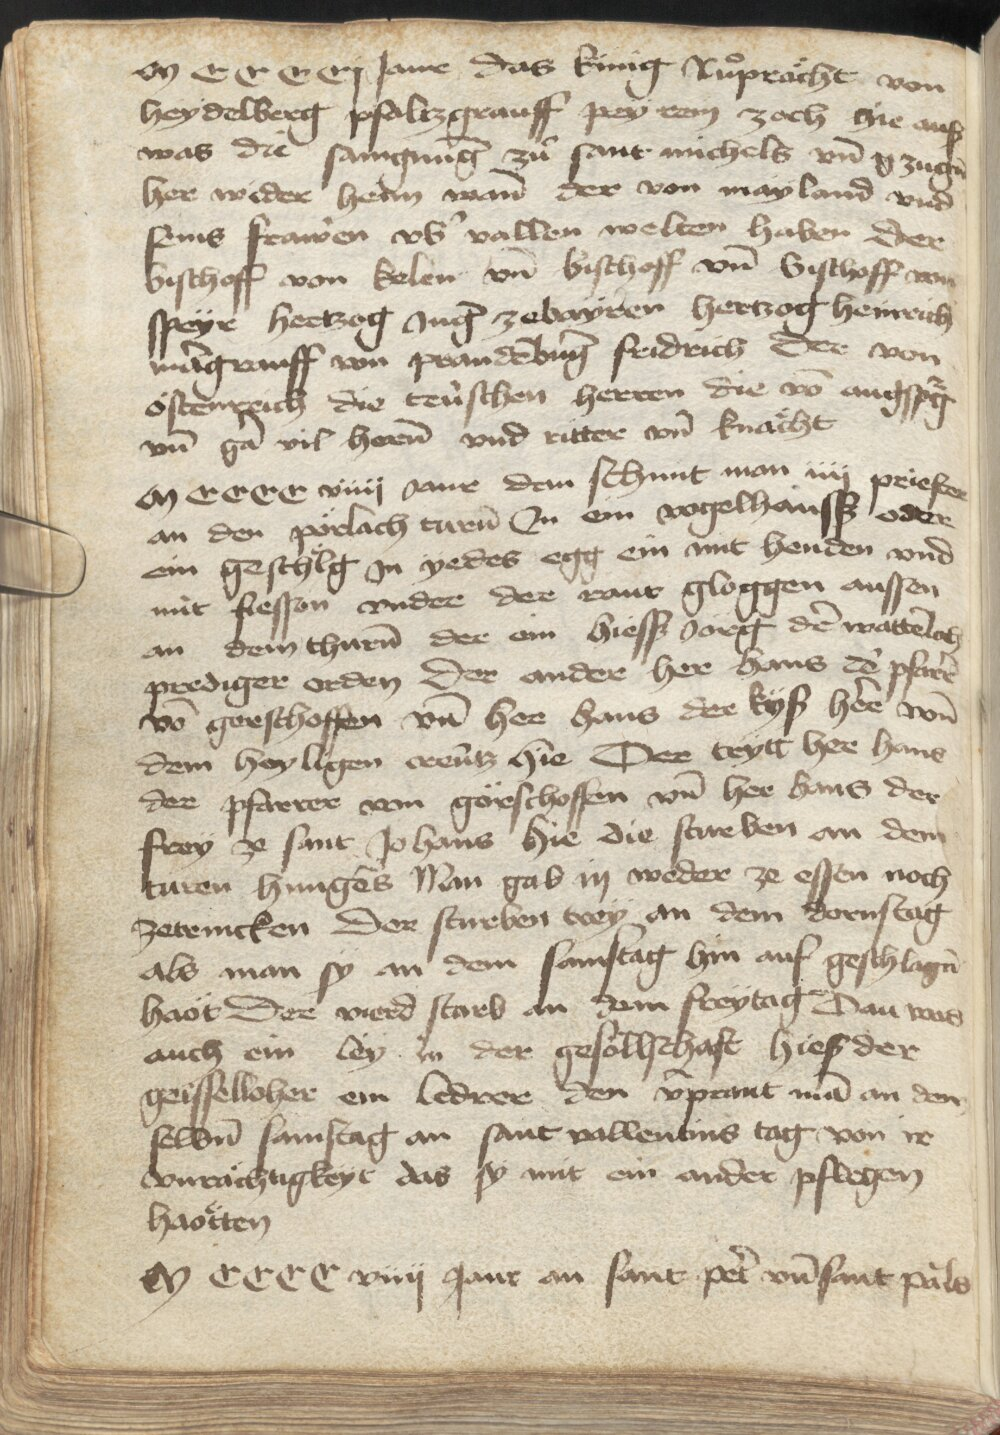 M C C C C j Jaur das künig Ruͦpraͤcht von
heydelberg pfaltzgrauff peyrem zoch hie auß
was die samgnung̃ zuͦ sant michels vn̄ zugn̄
her wider heim wann̄ der von mayland vnd
seins frawen vb̄ vallen welten haben Der
bischoff von kelen vn̄ bischoff vn̄ Bischoff von
speyr hertzog Jug̃ zebayren hertzog heinrich
marg̃rauff von prandēburg̃ fridrich Der von
östenreich die teüschen herren die vō augspg̃
vn̄ gā vil hern̄ vnd ritter vn̄ knaͤcht
M C C C C viiij Jaur dem schmit man iiij priester
an den pörlach turn̄ In ein vogelhauss oder
ein geschlͤg In yedes egg ein mit henden vnd
mit fiessen vnder der raut gloggen aussen
an dem thurn̄ der ein hiess Jorg dē wattēlech
prediger orden Der ander her hans dē pfarr̄
vō gerschoffen vn̄ her hans der kyß herr̄ von̄
dem heyligen creütz hie Der trytt her hans
der pfarrer von görschoffen vn̄ her hans der
frey ze sant Johans hie die sturben an dem
turen hungers̄ Man gab in weder ze essen noch
zetrincken Der sturben trey an dem dornstag
als man sy an dem samstag hin auf geschlagn̄
haöt Der vierd starb an dem freytag Dau was
auch ein ley in der gesöllschaft hieß der
geisselloher ein ledrer den v̄praut mā an dem
selbn̄ samstag an sant vallentins tag von ir
vnraͤchtigkeyt das sy mit ein ander pflegen
haötten
M C C C C viiij Jaur an sant pet̄r vn̄ sant pāls